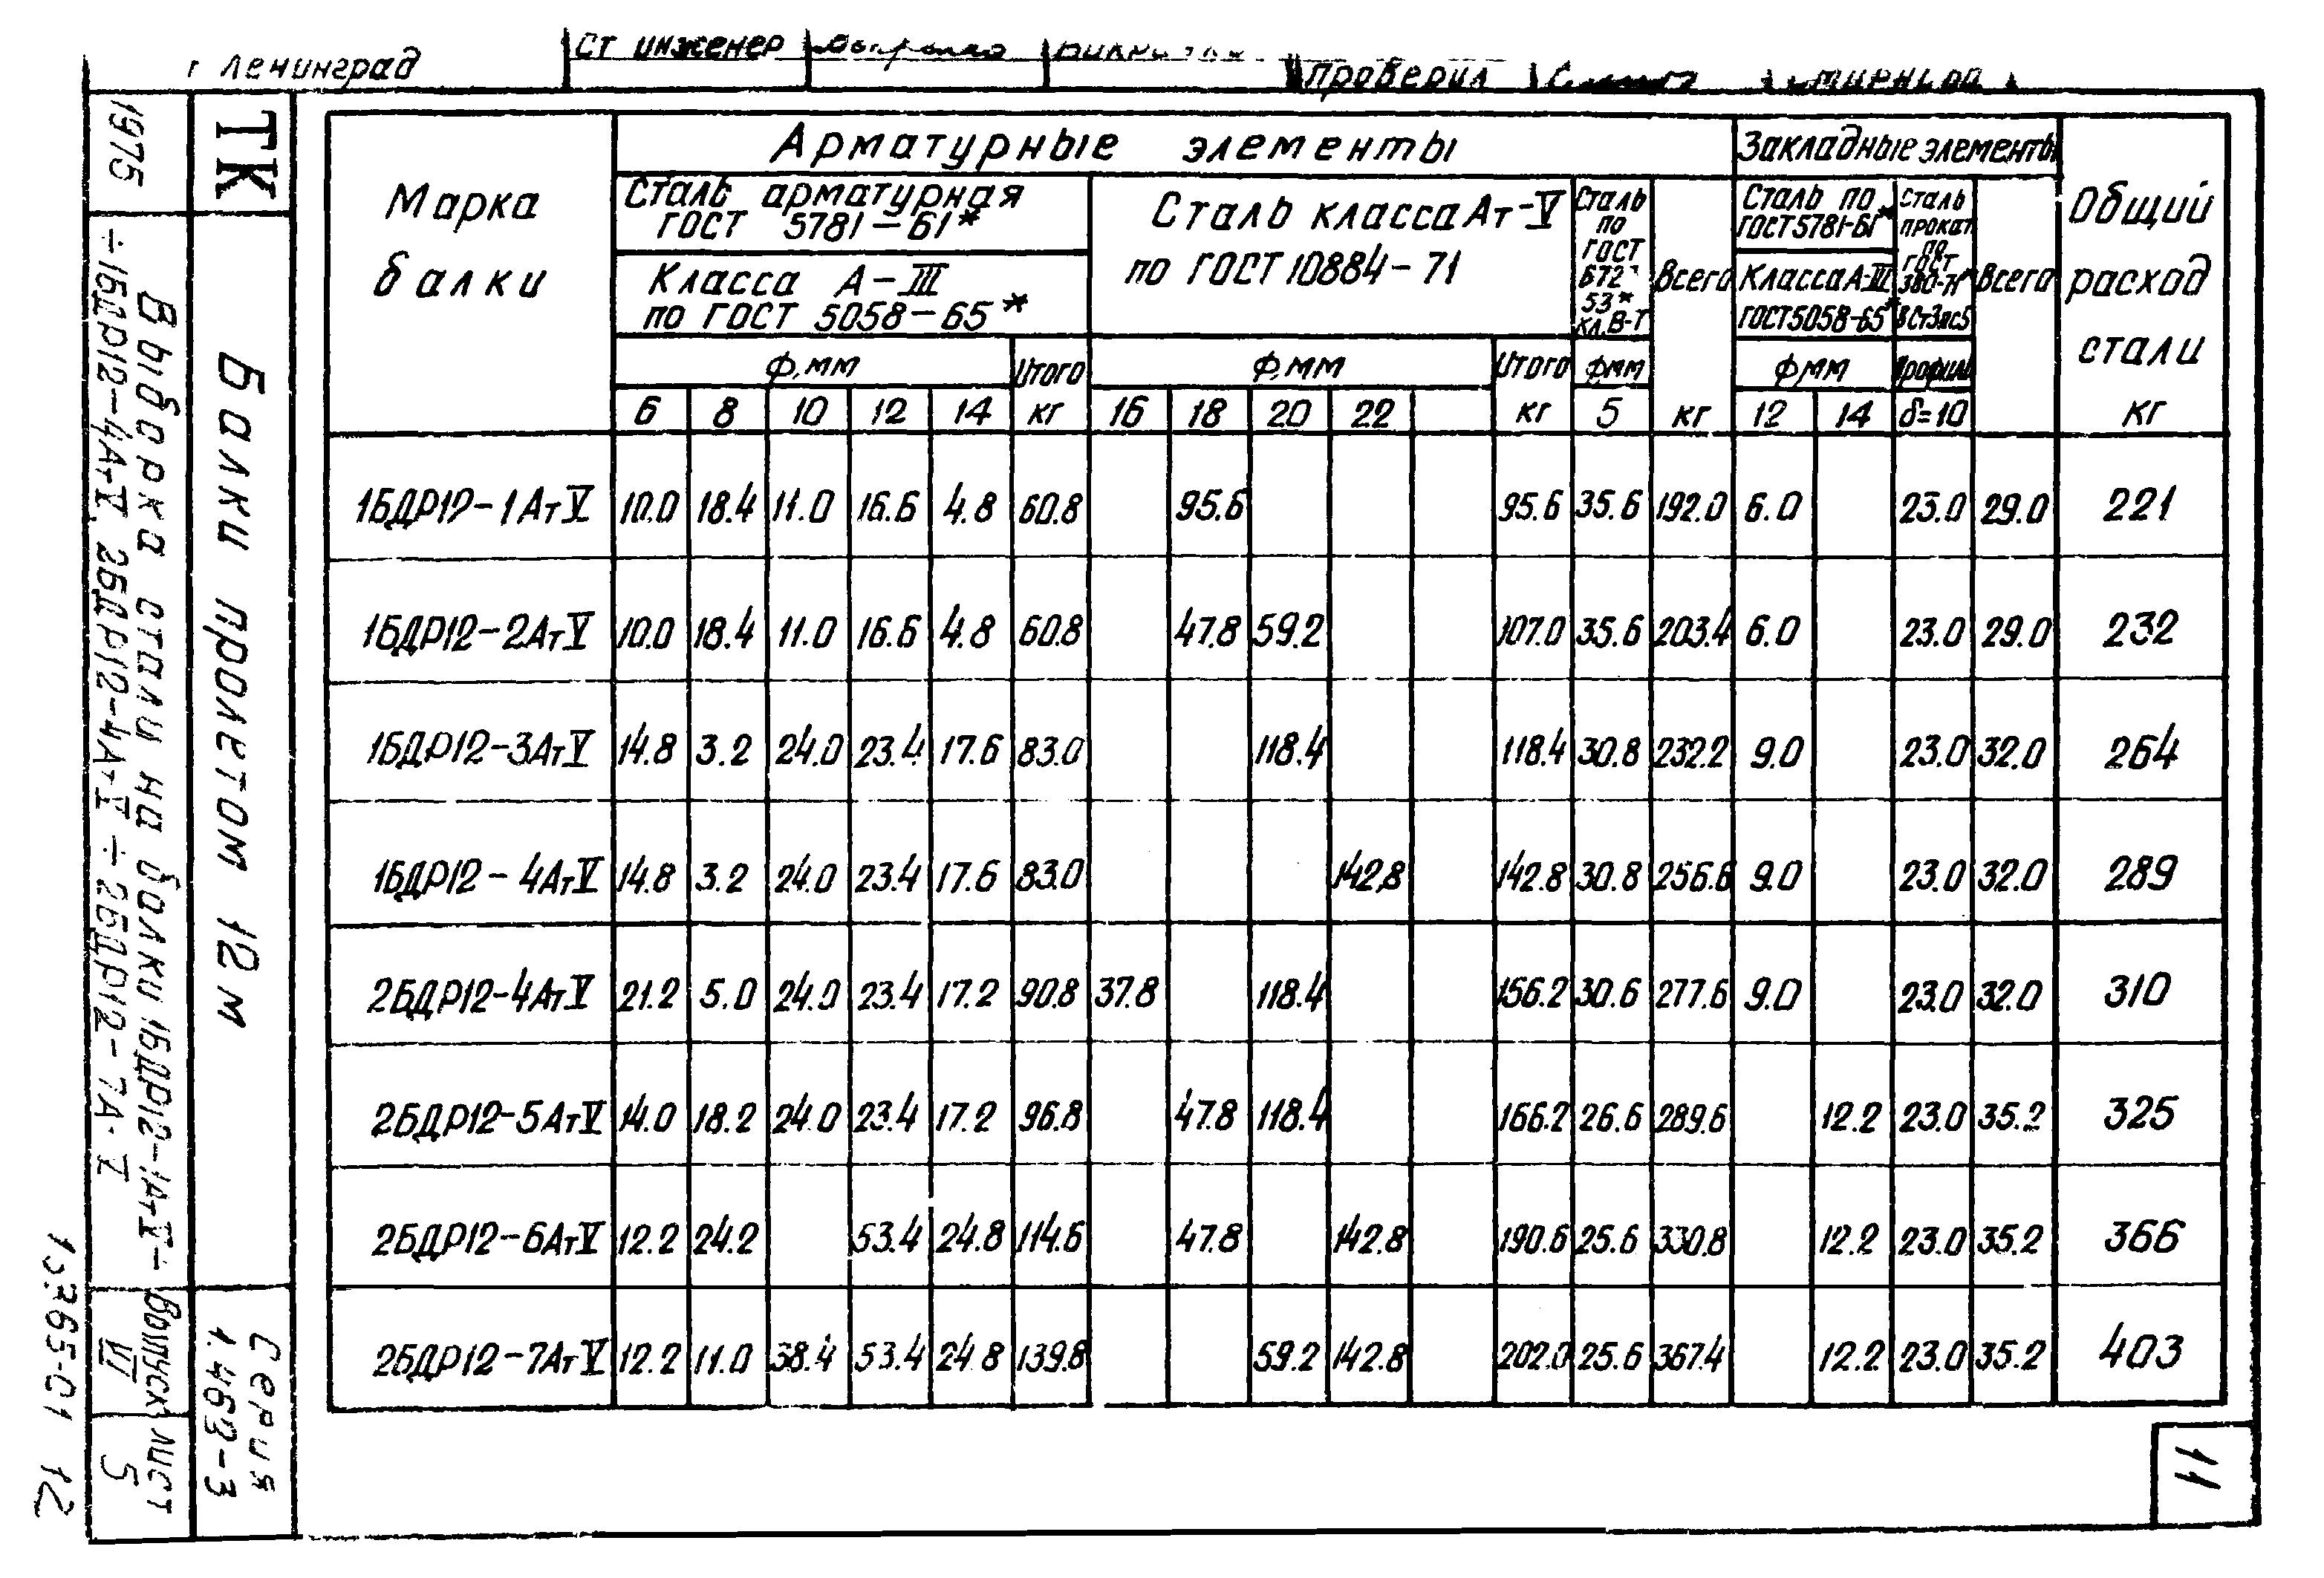 г Ленинград
Ст инженер
Проверил
1975
ТК
Балки пролетом 12 м
Выборка стали на балки 1БДР12-1Ат-V÷
÷1БДР12-4Ат-V, 2БДР12-4Ат-V÷2БДР12-7Ат-V
Серия
1.463-3
Выпуск лист
VI 5
12
Марка балки
Арматурные элементы
Закладные элементы
Общий расход стали кг
Сталь арматурная
ГОСТ 5781-61*
Класса А-III
по ГОСТ 5058-65*
Сталь класса Ат-V
по ГОСТ 10884-71
Сталь по ГОСТ 6727-53* кл.В-I
Всего
Сталь по
ГОСТ 5781-61*
Класса А-III
ГОСТ 5058-65*
Сталь прокат по ГОСТ 380-71* ВСт3пс5
Всего
Ф,мм Итого Ф,мм Итого Фмм Фмм Профиль
6 8 10 12 14 кг 16 18 20 22 кг 5 кг 12 14 δ=10
1БДР12-1АтV 10.0 18.4 11.0 16.6 4.8 60.8 95.6 95.6 35.6 192.0 6.0 23.0 29.0 221
1БДР12-2АтV 10.0 18.4 11.0 16.6 4.8 60.8 47.8 59.2 107.0 35.6 203.4 6.0 23.0 29.0 232
1БДР12-3АтV 14.8 3.2 24.0 23.4 17.6 83.0 118.4 118.4 30.8 232.2 9.0 23.0 32.0 264
1БДР12-4АтV 14.8 3.2 24.0 23.4 17.6 83.0 142,8 142.8 30.8 256.6 9.0 23.0 32.0 289
2БДР12-4АтV 21.2 5.0 24.0 23.4 17.2 90.8 37.8 118.4 156.2 30.6 277.6 9.0 23.0 32.0 310
2БДР12-5АтV 14.0 18.2 24.0 23.4 17.2 96.8 47.8 118.4 166.2 26.6 289.6 12.2 23.0 35.2 325
2БДР12-6АтV 12.2 24.2 53.4 24.8 114.6 47.8 142.8 190.6 25.6 330.8 12.2 23.0 35.2 366
2БДР12-7АтV 12.2 11.0 38.4 53.4 24.8 139.8 59.2 142.8 202.0 25.6 367.4 12.2 23.0 35.2 403
11